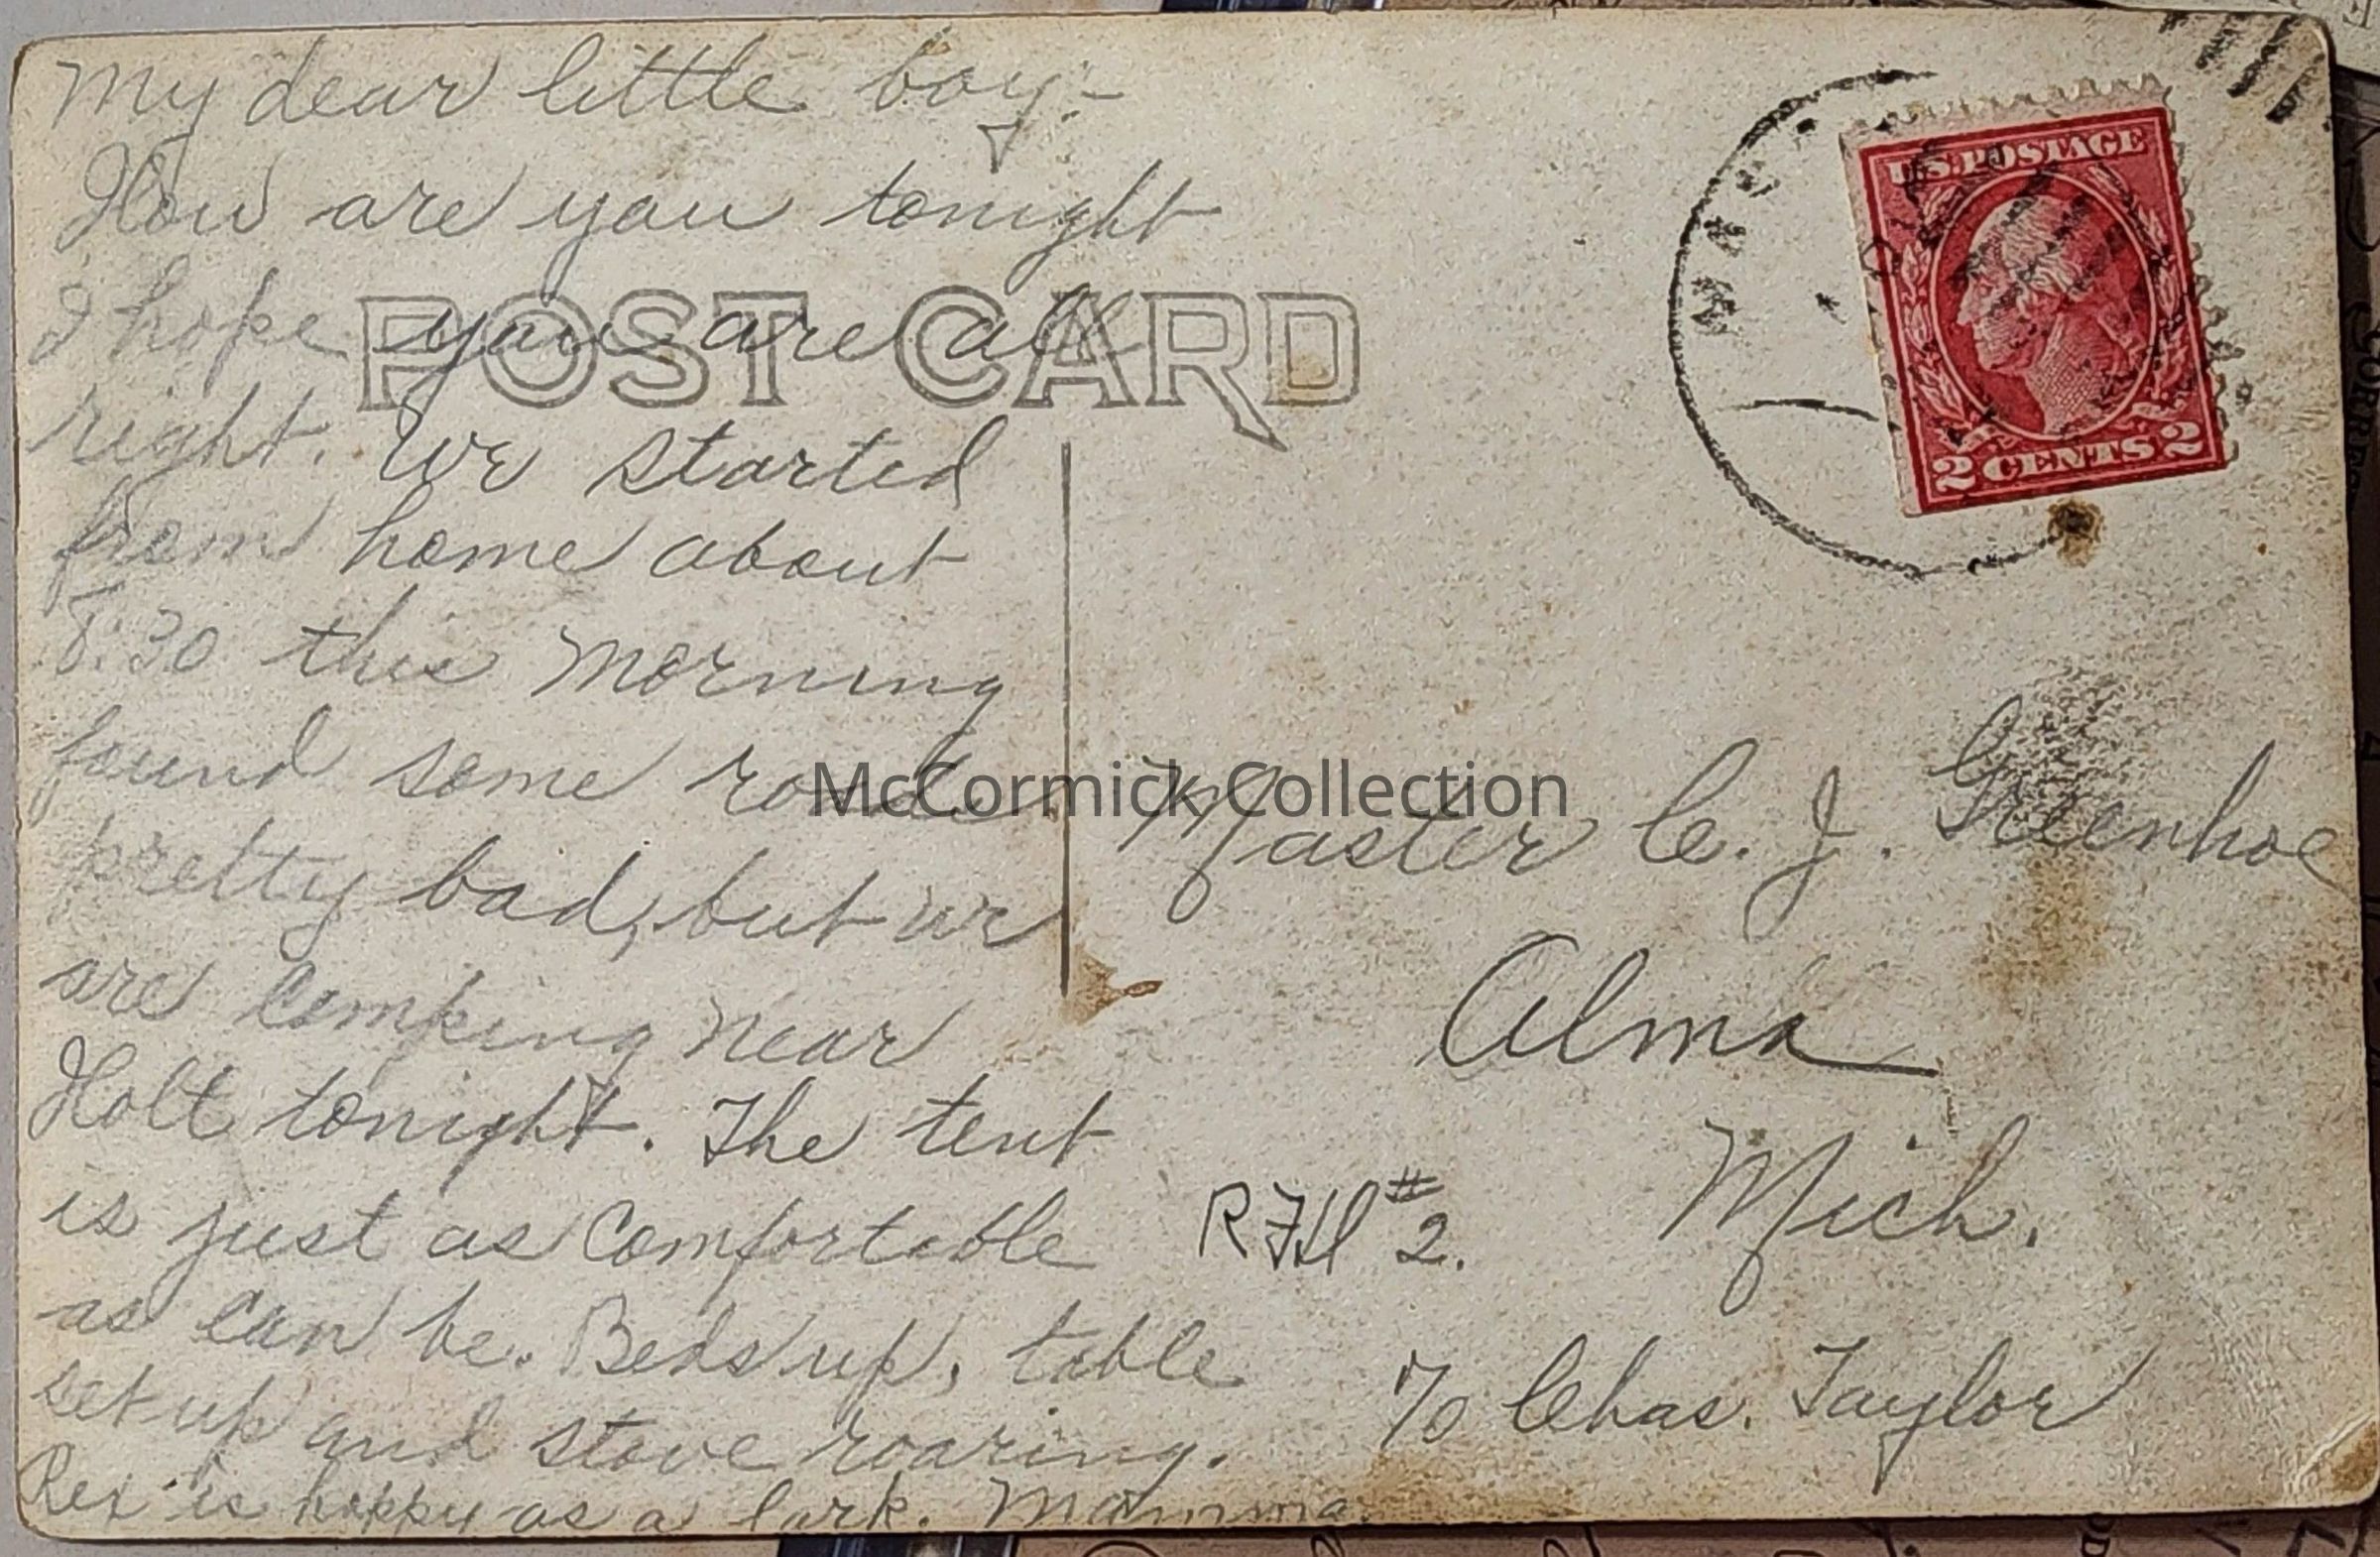 My dear little boy:-
How are you tonight
I hope you are all
right. We started
from home about
8:30 this morning
found some roads
pretty bad, but we
are camping near
Holt tonight. The tent
is just as comfortable
as can be. Beds up, table
set up and stove roaring.
Rex is happy as a lark. Mamma.
POST CARD
U.S. POSTAGE
2 CENTS 2
McCormick Collection
Master C. J. Greenhoe
Alma
Mich.
RFD #2.
c/o Chas. Taylor